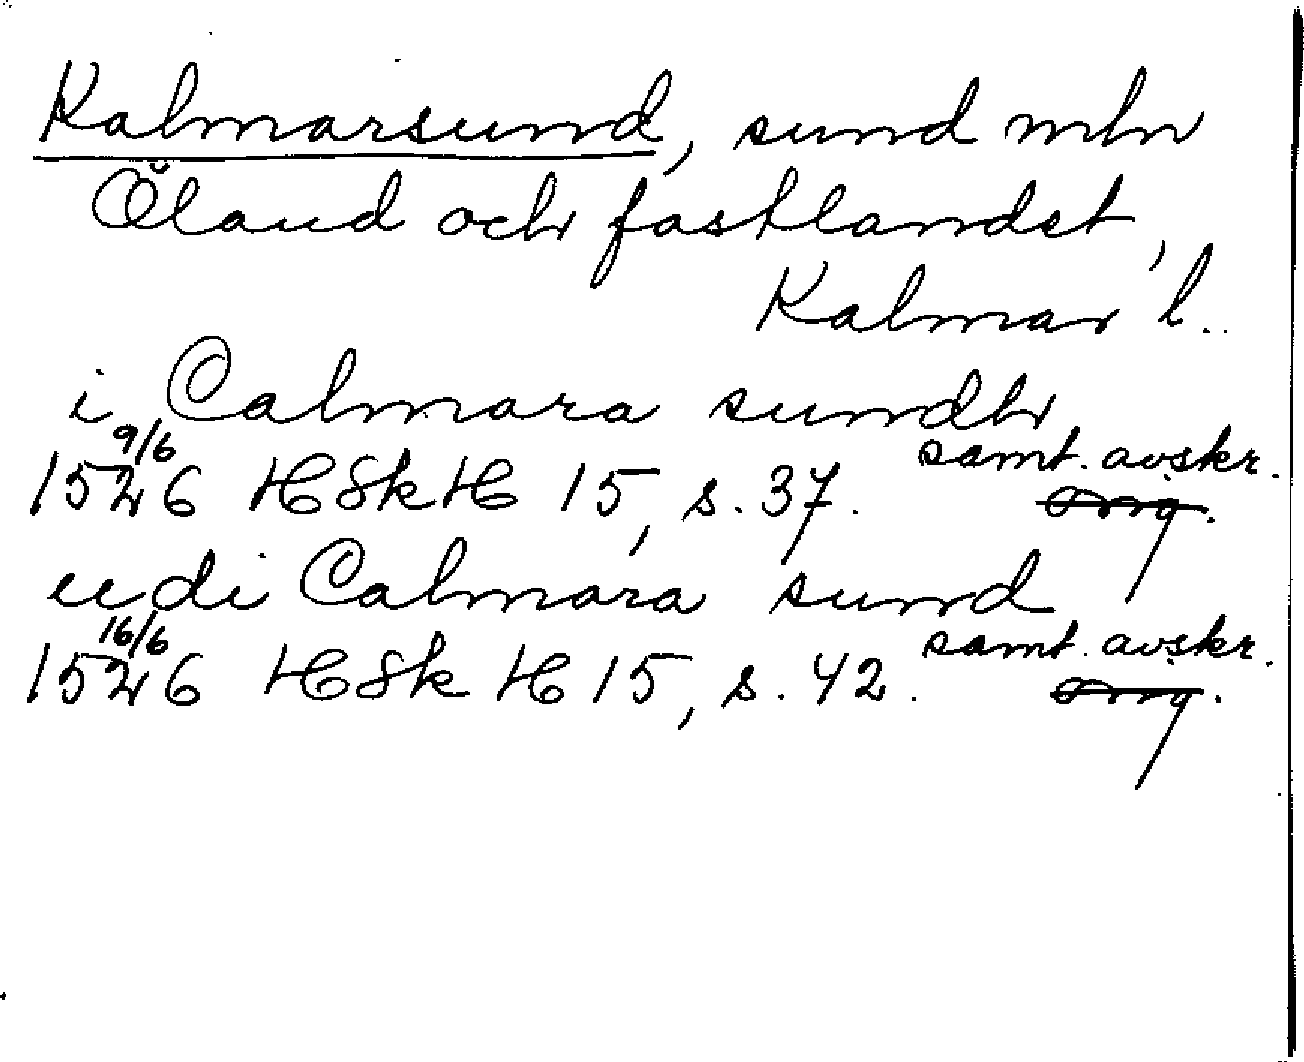 Kalmarsund, sund mln
Öland och fastlandet,
Kalmar l.
i Calmara sundh
9/6
1526 HSkH 15, s. 37. samt. avskr.
orig.
udi Calmara sund
16/6
1526 HSkH 15, s. 42. samt. avskr.
orig.